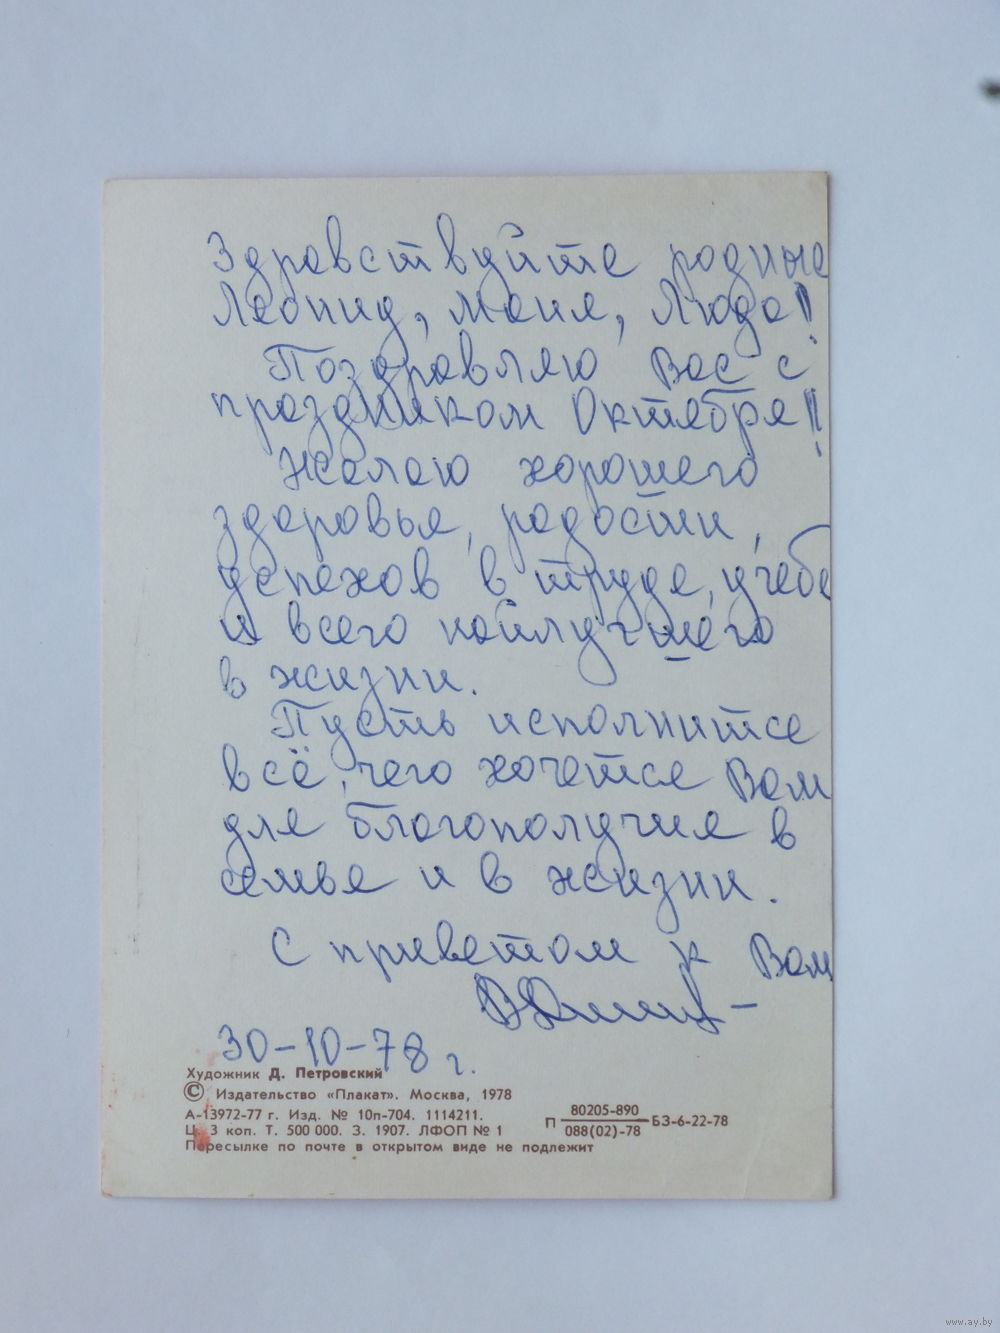 Здравствуйте родные
Леонид, Маня, Люда!
Поздравляю Вас с
праздником Октября!
Желаю хорошего
здоровья, радости,
успехов в труде, учебе
и всего найлучшего
в жизни.
Пусть исполнится
всё, чего хочется Вам
для благополучия в
семье и в жизни.
С приветом к Вам
30-10-78 г.
Художник Д. Петровский
© Издательство «Плакат». Москва, 1978
А-13972-77 г. Изд. № 10п-704. 1114211.
Ц. 3 коп. Т. 500 000. З. 1907. ЛФОП № 1
П 80205-890
088(02)-78 БЗ-6-22-78
Пересылке по почте в открытом виде не подлежит
www.ay.by